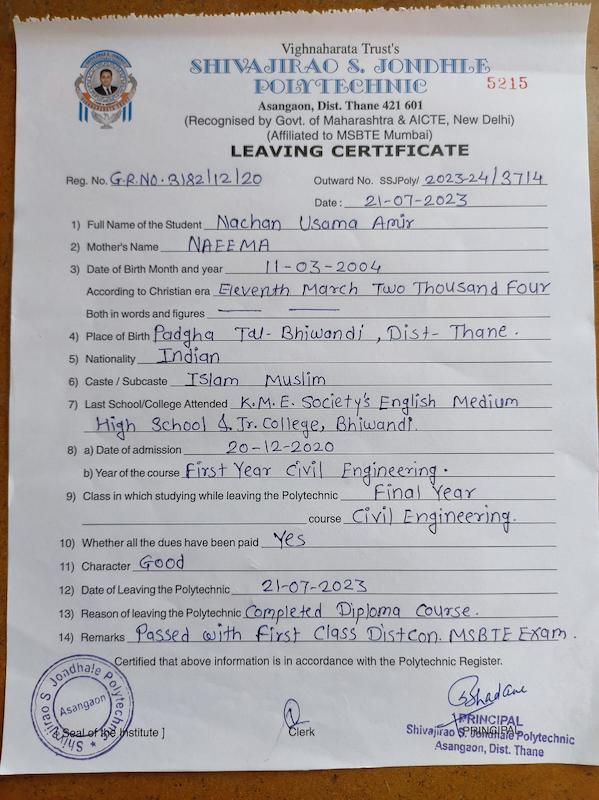 Vighnaharata Trust's
SHIVAJIRAO S. JONDHLE
POLYTECHNIC
5215
Asangaon, Dist. Thane 421 601
(Recognised by Govt. of Maharashtra & AICTE, New Delhi)
(Affiliated to MSBTE Mumbai)
LEAVING CERTIFICATE
Reg. No. G.R.NO. 3182/12/20 Outward No. SSJPoly/ 2023-24/3714
Date : 21-07-2023
1) Full Name of the Student Nachan Usama Amir
2) Mother's Name NAEEMA
3) Date of Birth Month and year 11-03-2004
According to Christian era Eleventh March Two Thousand Four
Both in words and figures
4) Place of Birth Padgha Tal- Bhiwandi , Dist- Thane .
5) Nationality Indian
6) Caste / Subcaste Islam Muslim
7) Last School/College Attended K.M.E. Society's English Medium
High School & Jr. College, Bhiwandi.
8) a) Date of admission 20-12-2020
b) Year of the course First Year Civil Engineering .
9) Class in which studying while leaving the Polytechnic Final Year
course Civil Engineering.
10) Whether all the dues have been paid Yes
11) Character Good
12) Date of Leaving the Polytechnic 21-07-2023
13) Reason of leaving the Polytechnic Completed Diploma Course .
14) Remarks Passed with First Class Distcon. MSBTE Exam .
Certified that above information is in accordance with the Polytechnic Register.
Shivajirao S Jondhale Polytechnic
Asangaon
[ Seal of the Institute ] Clerk PRINCIPAL
PRINCIPAL
Shivajirao S. Jondhale Polytechnic
Asangaon, Dist. Thane